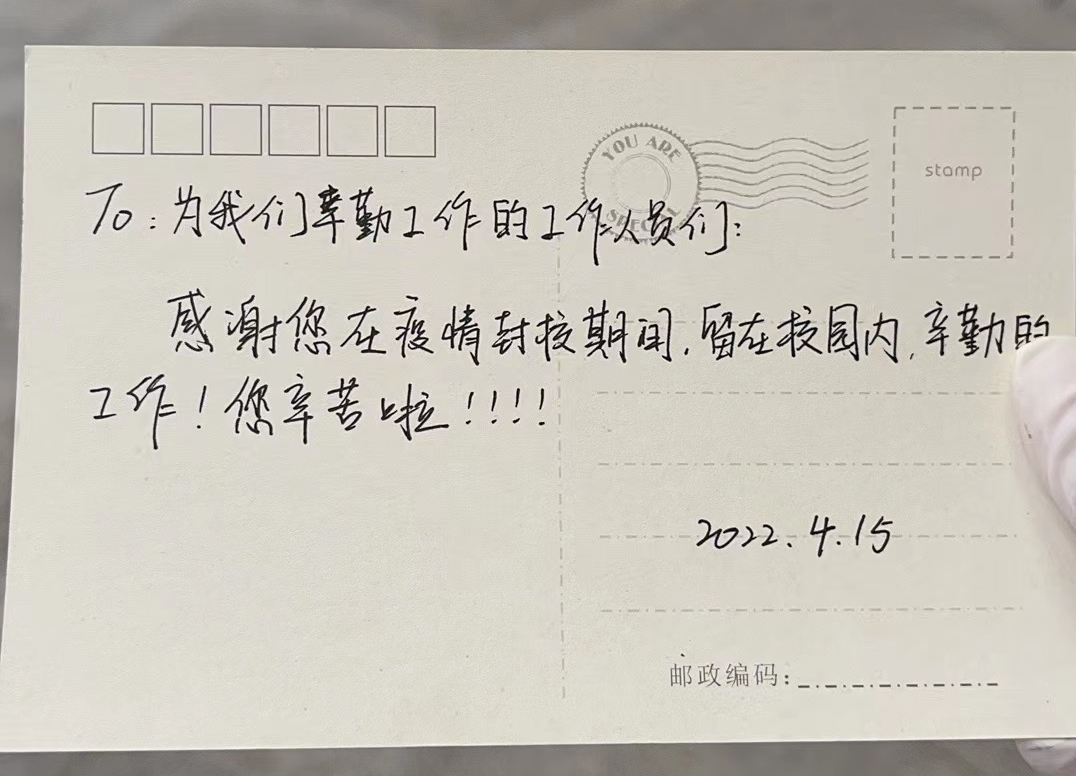 YOU ARE
SPECIAL
stamp
To:为我们辛勤工作的工作人员们:
感谢您在疫情封校期间,留在校园内,辛勤的
工作!您辛苦啦!!!!
2022.4.15
邮政编码: